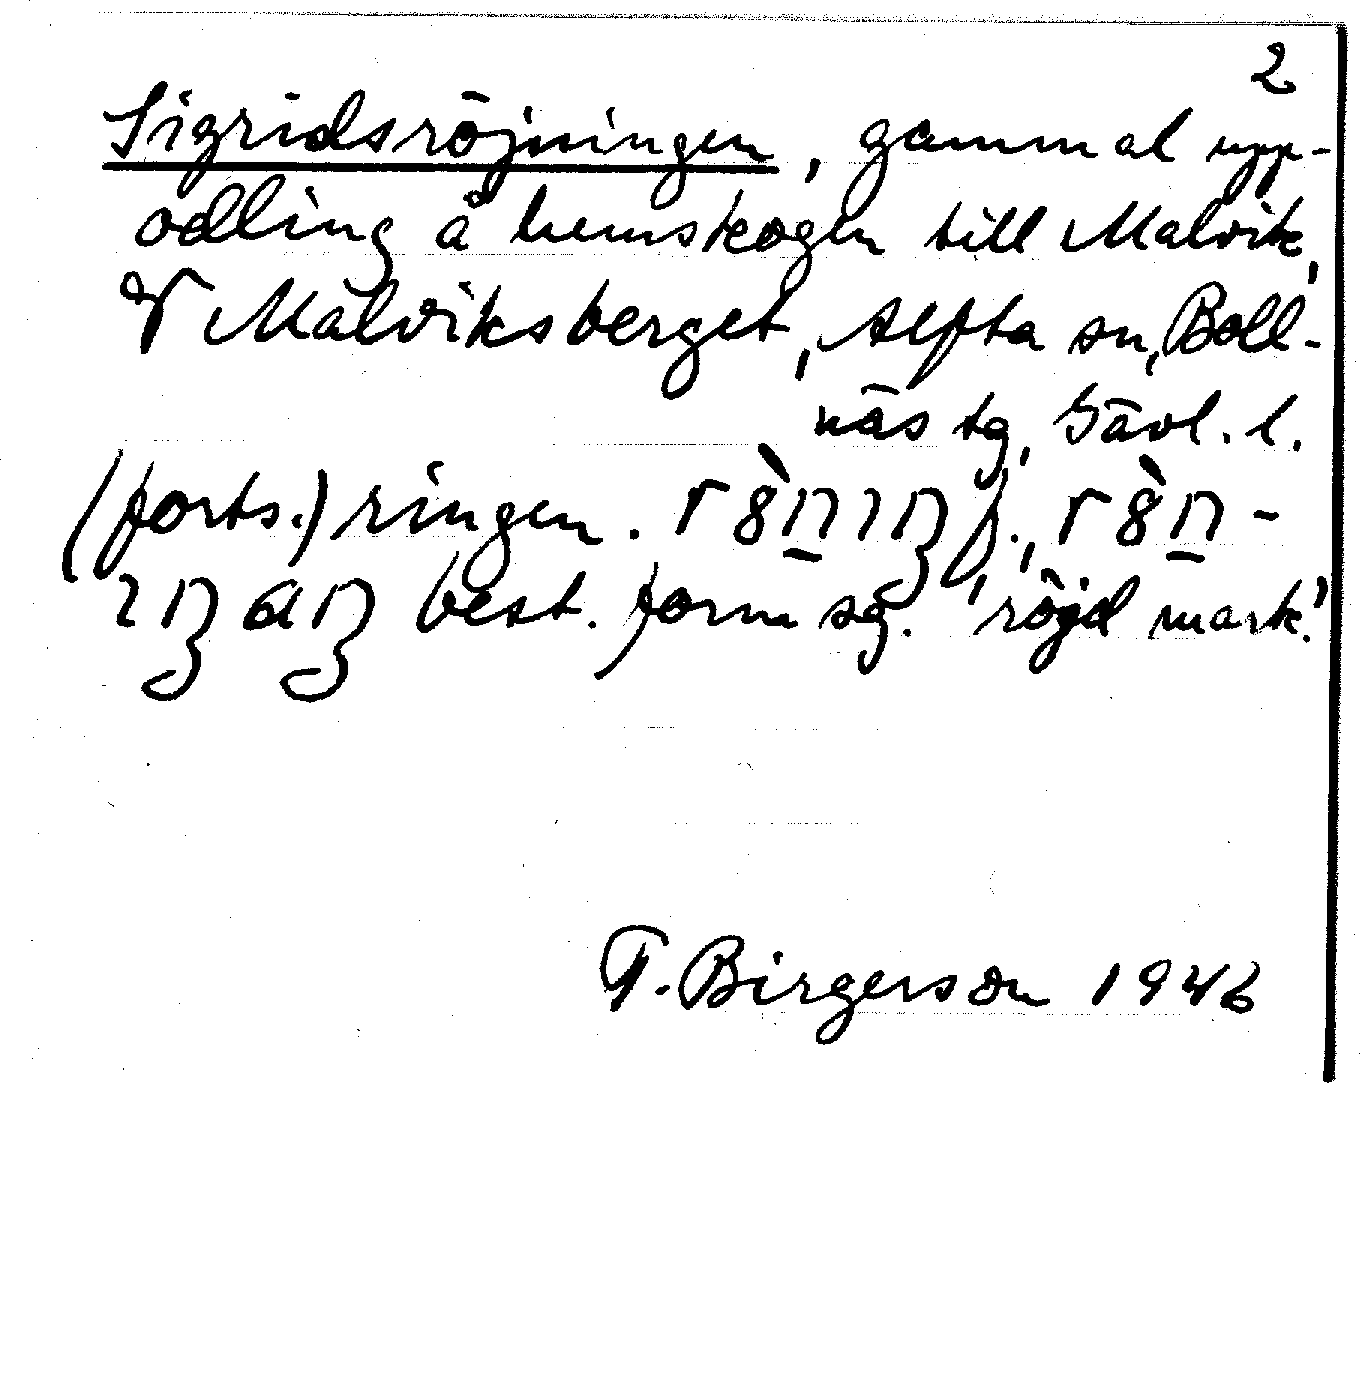 2
Sigridsröjningen, gammal upp-
odling å hemskogen till Malvik,
V Malviksberget, Alfta sn, Boll-
näs tg, Gävl. l.
(forts.) ringen. f.,
best. form sg. 'röjd mark'.
T. Birgerson 1946